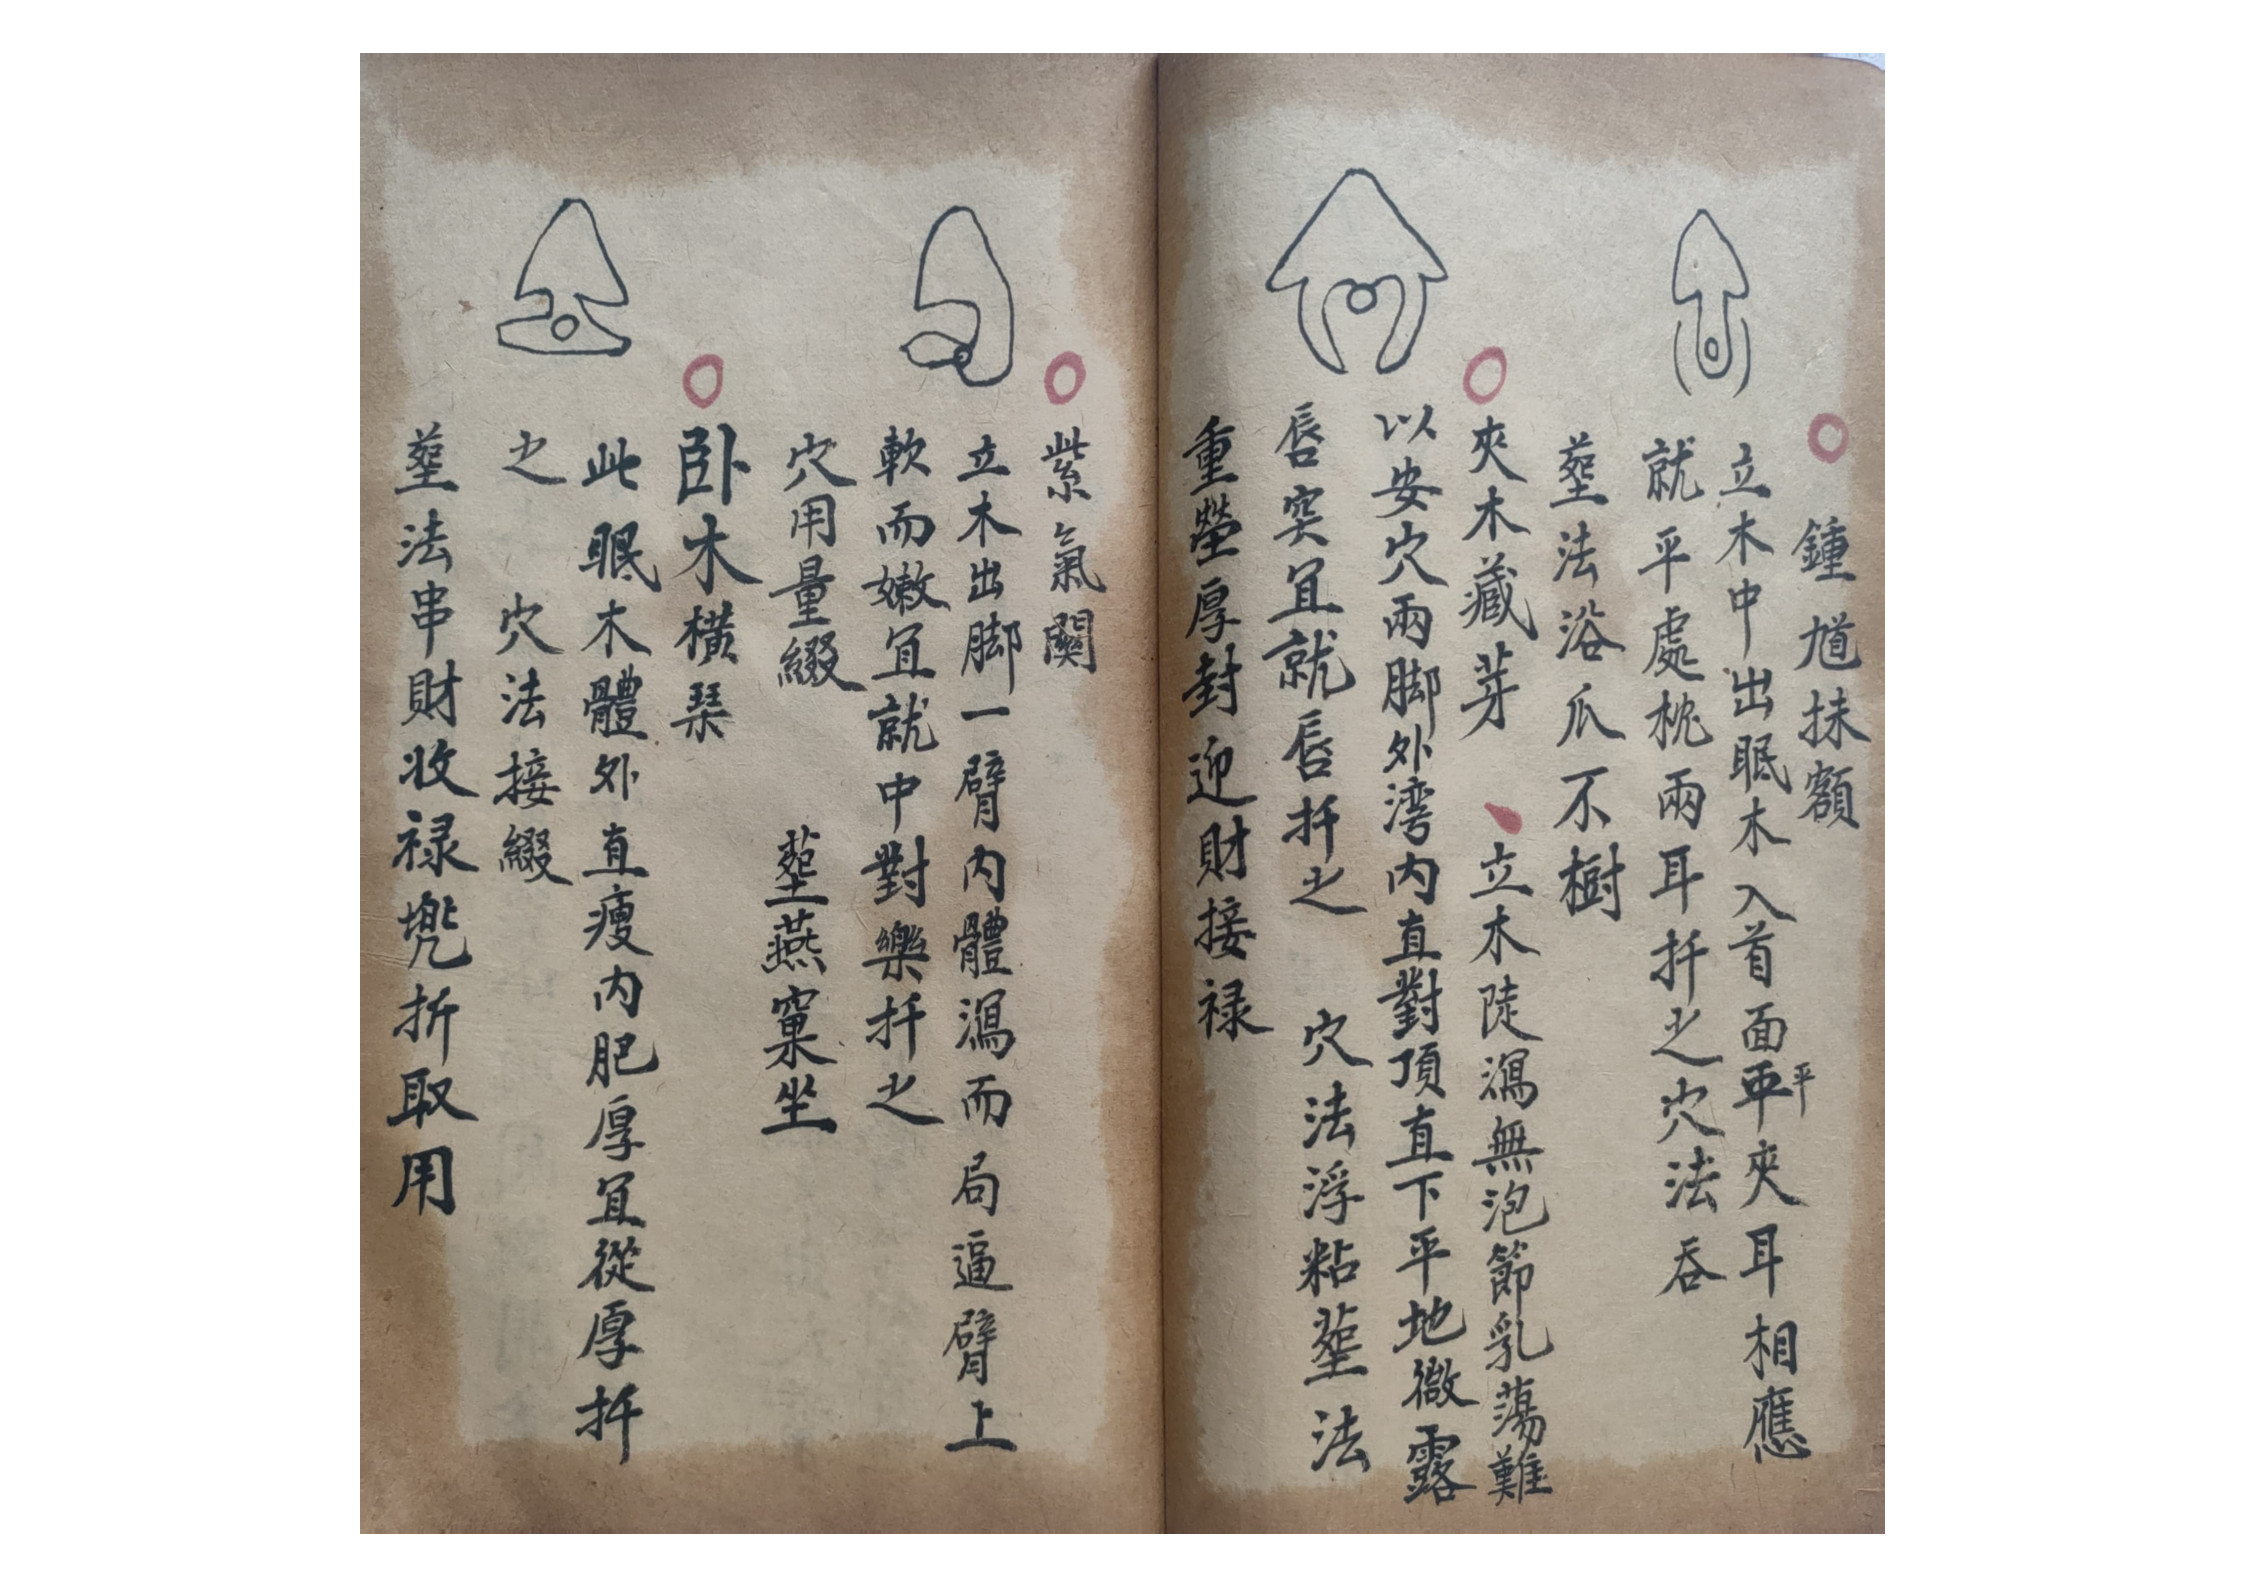 鍾馗抹額
立木中出眠木入首面平夾耳相應
平
就平處枕兩耳扦之穴法吞
塟法浴爪不樹
夾木藏芽 立木陡瀉無泡節乳蕩難
以安穴兩脚外湾内直對頂直下平地微露
唇突宜就唇扦之 穴法浮粘塟法
重塋厚封迎財接禄
紫氣闗
立木出脚一臂内體瀉而局逼臂上
軟而嫩宜就中對樂扦之
穴用量綴 塟燕窠坐
卧木橫琹
此眠木體外直瘦内肥厚宜從厚扦
之 穴法接綴
塟法串財收禄兠折取用